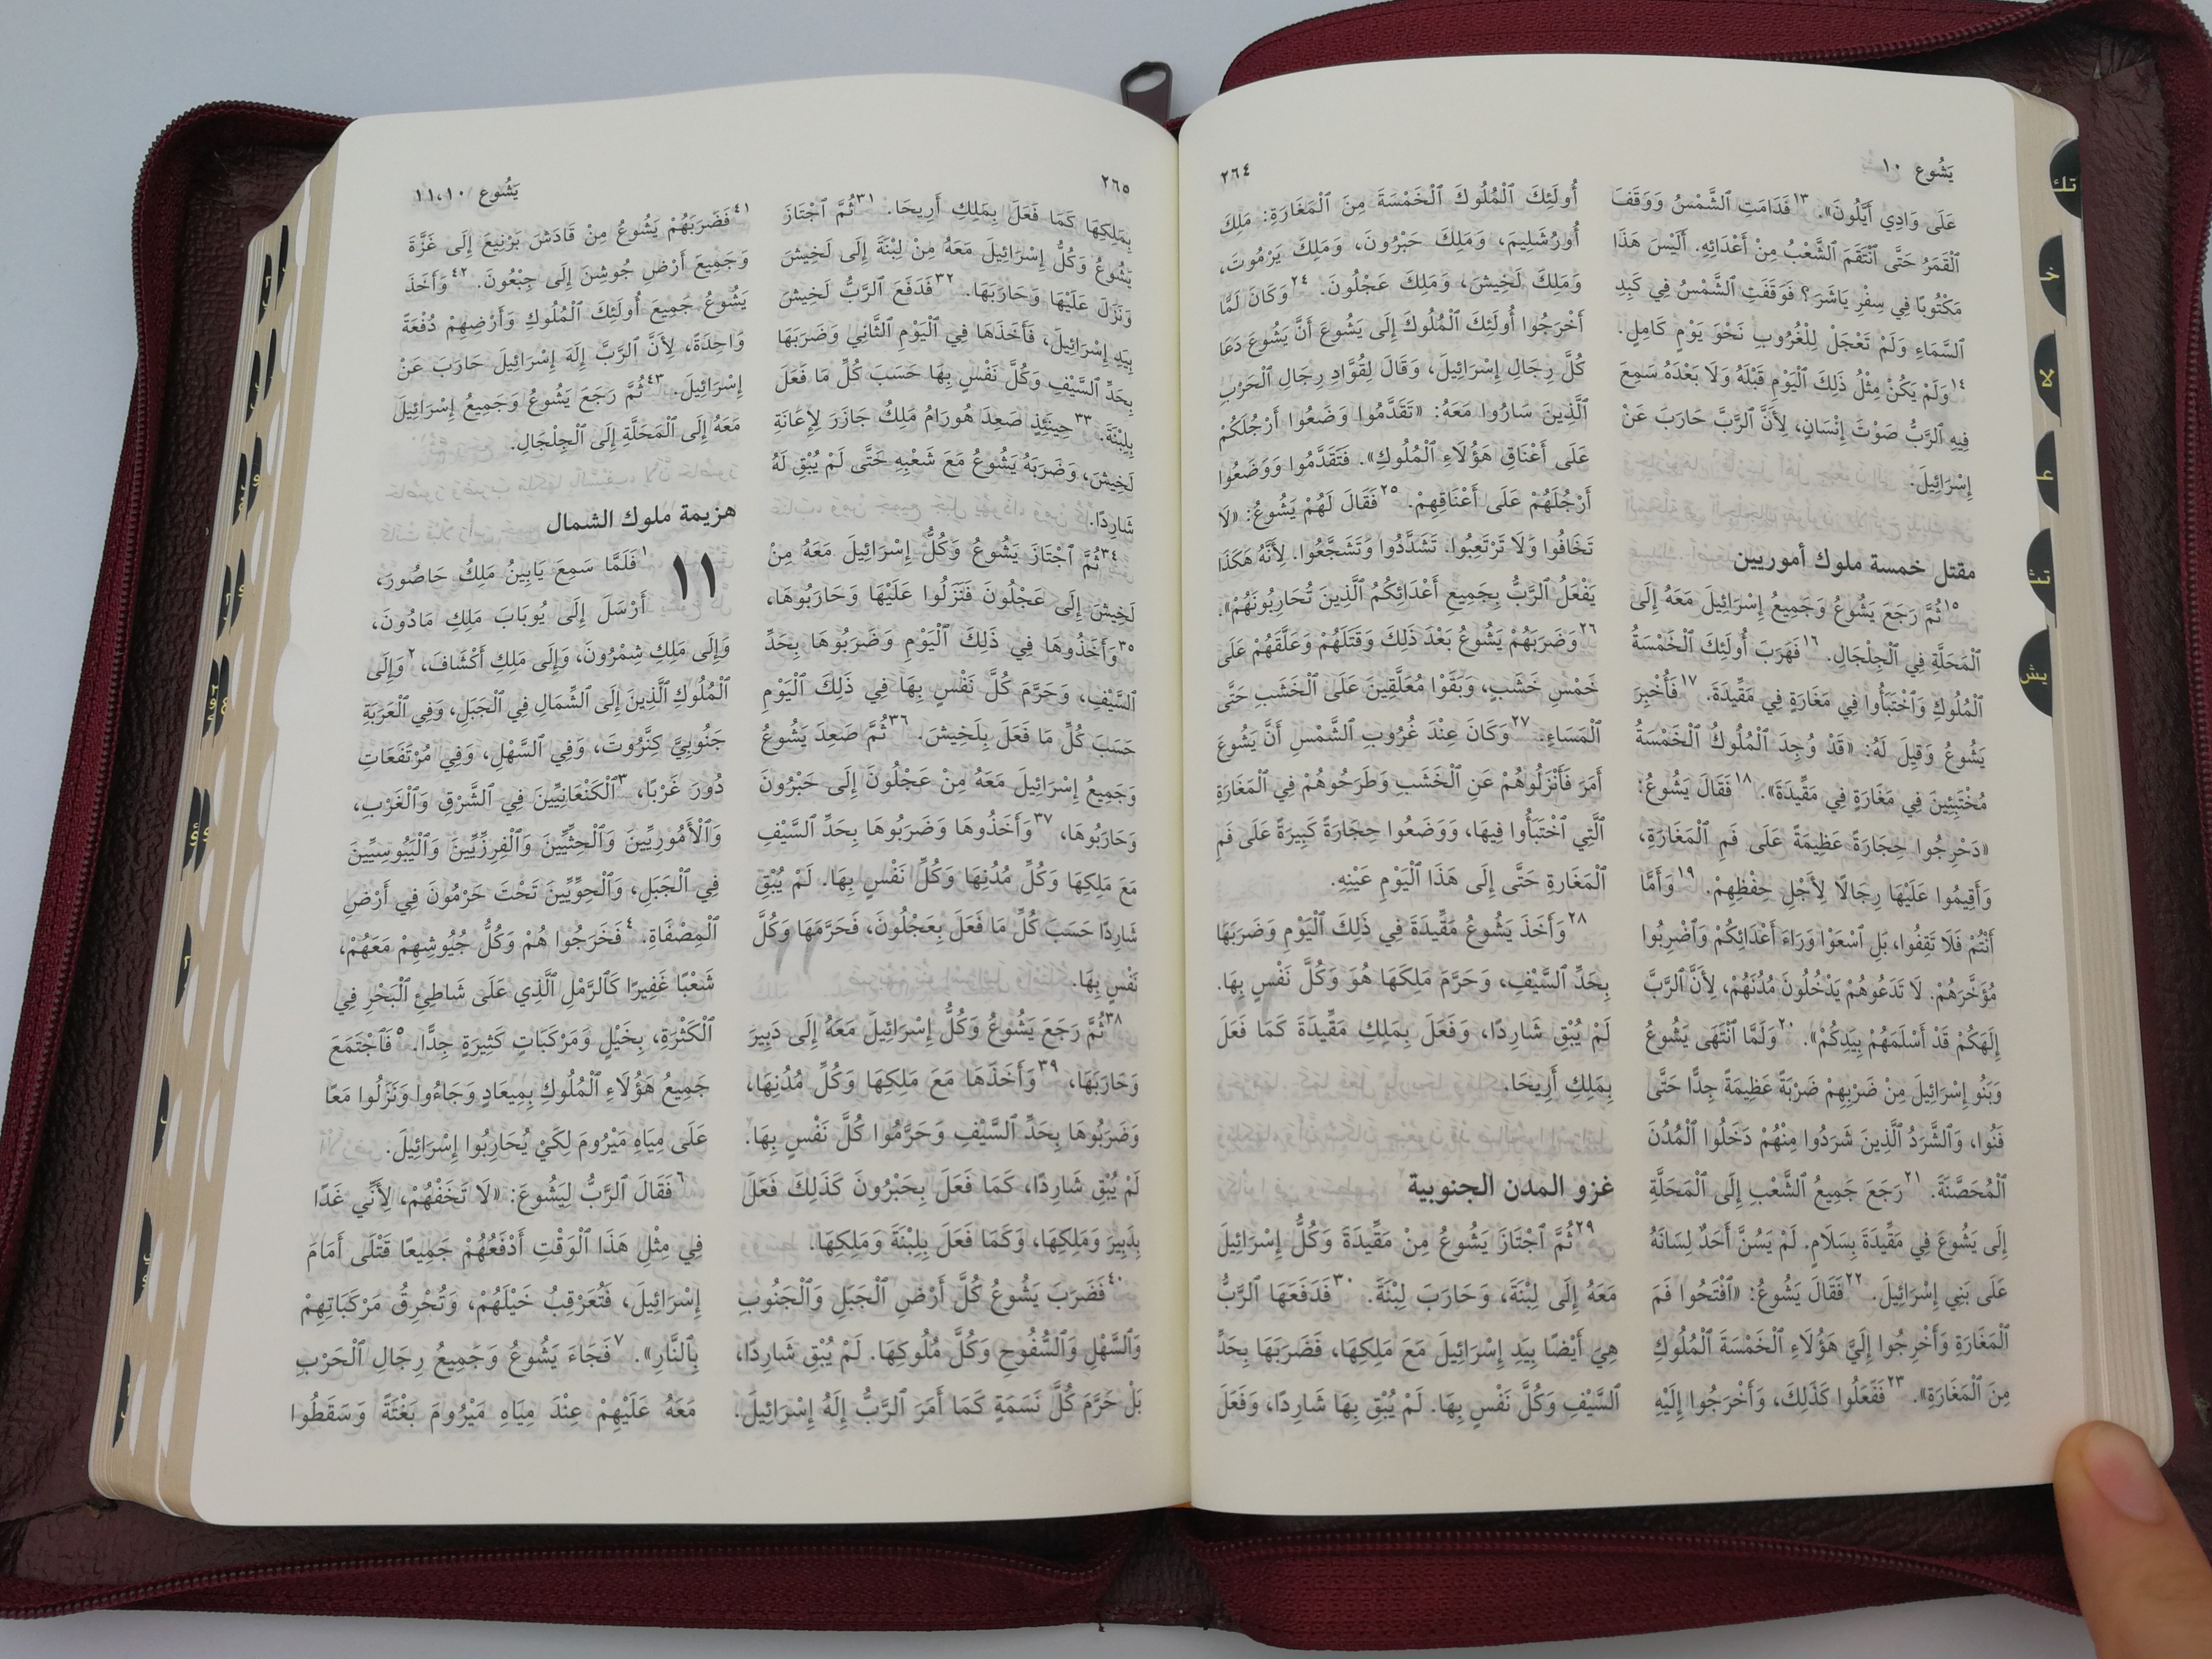 يَشُوع ١٠
٢٦٤
عَلَى وَادِي أَيَّلُونَ». ١٣فَدَامَتِ ٱلشَّمْسُ وَوَقَفَ
ٱلْقَمَرُ حَتَّى ٱنْتَقَمَ ٱلشَّعْبُ مِنْ أَعْدَائِهِ. أَلَيْسَ هَذَا
مَكْتُوبًا فِي سِفْرِ يَاشَرَ؟ فَوَقَفَتِ ٱلشَّمْسُ فِي كَبِدِ
ٱلسَّمَاءِ وَلَمْ تَعْجَلْ لِلْغُرُوبِ نَحْوَ يَوْمٍ كَامِلٍ.
١٤وَلَمْ يَكُنْ مِثْلُ ذَلِكَ ٱلْيَوْمِ قَبْلَهُ وَلَا بَعْدَهُ سَمِعَ
فِيهِ ٱلرَّبُّ صَوْتَ إِنْسَانٍ، لِأَنَّ ٱلرَّبَّ حَارَبَ عَنْ
إِسْرَائِيلَ.
مقتل خمسة ملوك أموريين
١٥ثُمَّ رَجَعَ يَشُوعُ وَجَمِيعُ إِسْرَائِيلَ مَعَهُ إِلَى
ٱلْمَحَلَّةِ فِي ٱلْجِلْجَالِ. ١٦فَهَرَبَ أُولَئِكَ ٱلْخَمْسَةُ
ٱلْمُلُوكِ وَٱخْتَبَأُوا فِي مَغَارَةٍ فِي مَقِّيدَةَ. ١٧فَأُخْبِرَ
يَشُوعُ وَقِيلَ لَهُ: «قَدْ وُجِدَ ٱلْمُلُوكُ ٱلْخَمْسَةُ
مُخْتَبِئِينَ فِي مَغَارَةٍ فِي مَقِّيدَةَ». ١٨فَقَالَ يَشُوعُ:
«دَحْرِجُوا حِجَارَةً عَظِيمَةً عَلَى فَمِ ٱلْمَغَارَةِ،
وَأَقِيمُوا عَلَيْهَا رِجَالًا لِأَجْلِ حِفْظِهِمْ. ١٩وَأَمَّا
أَنْتُمْ فَلَا تَقِفُوا، بَلِ ٱسْعَوْا وَرَاءَ أَعْدَائِكُمْ وَٱضْرِبُوا
مُؤَخَّرَهُمْ. لَا تَدَعُوهُمْ يَدْخُلُونَ مُدُنَهُمْ، لِأَنَّ ٱلرَّبَّ
إِلَهَكُمْ قَدْ أَسْلَمَهُمْ بِيَدِكُمْ». ٢٠وَلَمَّا ٱنْتَهَى يَشُوعُ
وَبَنُو إِسْرَائِيلَ مِنْ ضَرْبِهِمْ ضَرْبَةً عَظِيمَةً جِدًّا حَتَّى
فَنُوا، وَٱلشُّرَّدُ ٱلَّذِينَ شَرَدُوا مِنْهُمْ دَخَلُوا ٱلْمُدُنَ
ٱلْمُحَصَّنَةَ. ٢١رَجَعَ جَمِيعُ ٱلشَّعْبِ إِلَى ٱلْمَحَلَّةِ
إِلَى يَشُوعَ فِي مَقِّيدَةَ بِسَلَامٍ. لَمْ يَسُنَّ أَحَدٌ لِسَانَهُ
عَلَى بَنِي إِسْرَائِيلَ. ٢٢فَقَالَ يَشُوعُ: «ٱفْتَحُوا فَمَ
ٱلْمَغَارَةِ وَأَخْرِجُوا إِلَيَّ هَؤُلَاءِ ٱلْخَمْسَةَ ٱلْمُلُوكِ
مِنَ ٱلْمَغَارَةِ». ٢٣فَفَعَلُوا كَذَلِكَ، وَأَخْرَجُوا إِلَيْهِ
أُولَئِكَ ٱلْمُلُوكَ ٱلْخَمْسَةَ مِنَ ٱلْمَغَارَةِ: مَلِكَ
أُورُشَلِيمَ، وَمَلِكَ حَبْرُونَ، وَمَلِكَ يَرْمُوتَ،
وَمَلِكَ لَخِيشَ، وَمَلِكَ عَجْلُونَ. ٢٤وَكَانَ لَمَّا
أَخْرَجُوا أُولَئِكَ ٱلْمُلُوكَ إِلَى يَشُوعَ أَنَّ يَشُوعَ دَعَا
كُلَّ رِجَالِ إِسْرَائِيلَ، وَقَالَ لِقُوَّادِ رِجَالِ ٱلْحَرْبِ
ٱلَّذِينَ سَارُوا مَعَهُ: «تَقَدَّمُوا وَضَعُوا أَرْجُلَكُمْ
عَلَى أَعْنَاقِ هَؤُلَاءِ ٱلْمُلُوكِ». فَتَقَدَّمُوا وَوَضَعُوا
أَرْجُلَهُمْ عَلَى أَعْنَاقِهِمْ. ٢٥فَقَالَ لَهُمْ يَشُوعُ: «لَا
تَخَافُوا وَلَا تَرْتَعِبُوا. تَشَدَّدُوا وَتَشَجَّعُوا. لِأَنَّهُ هَكَذَا
يَفْعَلُ ٱلرَّبُّ بِجَمِيعِ أَعْدَائِكُمُ ٱلَّذِينَ تُحَارِبُونَهُمْ».
٢٦وَضَرَبَهُمْ يَشُوعُ بَعْدَ ذَلِكَ وَقَتَلَهُمْ وَعَلَّقَهُمْ عَلَى
خَمْسِ خَشَبٍ، وَبَقَوْا مُعَلَّقِينَ عَلَى ٱلْخَشَبِ حَتَّى
ٱلْمَسَاءِ. ٢٧وَكَانَ عِنْدَ غُرُوبِ ٱلشَّمْسِ أَنَّ يَشُوعَ
أَمَرَ فَأَنْزَلُوهُمْ عَنِ ٱلْخَشَبِ وَطَرَحُوهُمْ فِي ٱلْمَغَارَةِ
ٱلَّتِي ٱخْتَبَأُوا فِيهَا، وَوَضَعُوا حِجَارَةً كَبِيرَةً عَلَى فَمِ
ٱلْمَغَارَةِ حَتَّى إِلَى هَذَا ٱلْيَوْمِ عَيْنِهِ.
٢٨وَأَخَذَ يَشُوعُ مَقِّيدَةَ فِي ذَلِكَ ٱلْيَوْمِ وَضَرَبَهَا
بِحَدِّ ٱلسَّيْفِ، وَحَرَّمَ مَلِكَهَا هُوَ وَكُلَّ نَفْسٍ بِهَا.
لَمْ يُبْقِ شَارِدًا، وَفَعَلَ بِمَلِكِ مَقِّيدَةَ كَمَا فَعَلَ
بِمَلِكِ أَرِيحَا.
غزو المدن الجنوبية
٢٩ثُمَّ ٱجْتَازَ يَشُوعُ مِنْ مَقِّيدَةَ وَكُلُّ إِسْرَائِيلَ
مَعَهُ إِلَى لِبْنَةَ، وَحَارَبَ لِبْنَةَ. ٣٠فَدَفَعَهَا ٱلرَّبُّ
هِيَ أَيْضًا بِيَدِ إِسْرَائِيلَ مَعَ مَلِكِهَا، فَضَرَبَهَا بِحَدِّ
ٱلسَّيْفِ وَكُلَّ نَفْسٍ بِهَا. لَمْ يُبْقِ بِهَا شَارِدًا، وَفَعَلَ
تك
خر
لا
عد
تث
يش
٢٦٥
يَشُوع ١٠، ١١
بِمَلِكِهَا كَمَا فَعَلَ بِمَلِكِ أَرِيحَا. ٣١ثُمَّ ٱجْتَازَ
يَشُوعُ وَكُلُّ إِسْرَائِيلَ مَعَهُ مِنْ لِبْنَةَ إِلَى لَخِيشَ
وَنَزَلَ عَلَيْهَا وَحَارَبَهَا. ٣٢فَدَفَعَ ٱلرَّبُّ لَخِيشَ
بِيَدِ إِسْرَائِيلَ، فَأَخَذَهَا فِي ٱلْيَوْمِ ٱلثَّانِي وَضَرَبَهَا
بِحَدِّ ٱلسَّيْفِ وَكُلَّ نَفْسٍ بِهَا حَسَبَ كُلِّ مَا فَعَلَ
بِلِبْنَةَ. ٣٣حِينَئِذٍ صَعِدَ هُورَامُ مَلِكُ جَازَرَ لِإِعَانَةِ
لَخِيشَ، وَضَرَبَهُ يَشُوعُ مَعَ شَعْبِهِ حَتَّى لَمْ يُبْقِ لَهُ
شَارِدًا.
٣٤ثُمَّ ٱجْتَازَ يَشُوعُ وَكُلُّ إِسْرَائِيلَ مَعَهُ مِنْ
لَخِيشَ إِلَى عَجْلُونَ فَنَزَلُوا عَلَيْهَا وَحَارَبُوهَا،
٣٥وَأَخَذُوهَا فِي ذَلِكَ ٱلْيَوْمِ وَضَرَبُوهَا بِحَدِّ
ٱلسَّيْفِ، وَحَرَّمَ كُلَّ نَفْسٍ بِهَا فِي ذَلِكَ ٱلْيَوْمِ
حَسَبَ كُلِّ مَا فَعَلَ بِلَخِيشَ. ٣٦ثُمَّ صَعِدَ يَشُوعُ
وَجَمِيعُ إِسْرَائِيلَ مَعَهُ مِنْ عَجْلُونَ إِلَى حَبْرُونَ
وَحَارَبُوهَا، ٣٧وَأَخَذُوهَا وَضَرَبُوهَا بِحَدِّ ٱلسَّيْفِ
مَعَ مَلِكِهَا وَكُلِّ مُدُنِهَا وَكُلِّ نَفْسٍ بِهَا. لَمْ يُبْقِ
شَارِدًا حَسَبَ كُلِّ مَا فَعَلَ بِعَجْلُونَ، فَحَرَّمَهَا وَكُلَّ
نَفْسٍ بِهَا.
٣٨ثُمَّ رَجَعَ يَشُوعُ وَكُلُّ إِسْرَائِيلَ مَعَهُ إِلَى دَبِيرَ
وَحَارَبَهَا، ٣٩وَأَخَذَهَا مَعَ مَلِكِهَا وَكُلِّ مُدُنِهَا،
وَضَرَبُوهَا بِحَدِّ ٱلسَّيْفِ وَحَرَّمُوا كُلَّ نَفْسٍ بِهَا.
لَمْ يُبْقِ شَارِدًا، كَمَا فَعَلَ بِحَبْرُونَ كَذَلِكَ فَعَلَ
بِدَبِيرَ وَمَلِكِهَا، وَكَمَا فَعَلَ بِلِبْنَةَ وَمَلِكِهَا.
٤٠فَضَرَبَ يَشُوعُ كُلَّ أَرْضِ ٱلْجَبَلِ وَٱلْجَنُوبِ
وَٱلسَّهْلِ وَٱلسُّفُوحِ وَكُلَّ مُلُوكِهَا. لَمْ يُبْقِ شَارِدًا،
بَلْ حَرَّمَ كُلَّ نَسَمَةٍ كَمَا أَمَرَ ٱلرَّبُّ إِلَهُ إِسْرَائِيلَ.
٤١فَضَرَبَهُمْ يَشُوعُ مِنْ قَادَشَ بَرْنِيعَ إِلَى غَزَّةَ
وَجَمِيعَ أَرْضِ جُوشِنَ إِلَى جِبْعُونَ. ٤٢وَأَخَذَ
يَشُوعُ جَمِيعَ أُولَئِكَ ٱلْمُلُوكِ وَأَرْضِهِمْ دُفْعَةً
وَاحِدَةً، لِأَنَّ ٱلرَّبَّ إِلَهَ إِسْرَائِيلَ حَارَبَ عَنْ
إِسْرَائِيلَ. ٤٣ثُمَّ رَجَعَ يَشُوعُ وَجَمِيعُ إِسْرَائِيلَ
مَعَهُ إِلَى ٱلْمَحَلَّةِ إِلَى ٱلْجِلْجَالِ.
هزيمة ملوك الشمال
١١ ١فَلَمَّا سَمِعَ يَابِينُ مَلِكُ حَاصُورَ،
أَرْسَلَ إِلَى يُوبَابَ مَلِكِ مَادُونَ،
وَإِلَى مَلِكِ شِمْرُونَ، وَإِلَى مَلِكِ أَكْشَافَ، ٢وَإِلَى
ٱلْمُلُوكِ ٱلَّذِينَ إِلَى ٱلشِّمَالِ فِي ٱلْجَبَلِ، وَفِي ٱلْعَرَبَةِ
جَنُوبِيَّ كِنَّرُوتَ، وَفِي ٱلسَّهْلِ، وَفِي مُرْتَفَعَاتِ
دُورَ غَرْبًا، ٣ٱلْكَنْعَانِيِّينَ فِي ٱلشَّرْقِ وَٱلْغَرْبِ،
وَٱلْأَمُورِيِّينَ وَٱلْحِثِّيِّينَ وَٱلْفِرِزِّيِّينَ وَٱلْيَبُوسِيِّينَ
فِي ٱلْجَبَلِ، وَٱلْحِوِّيِّينَ تَحْتَ حَرْمُونَ فِي أَرْضِ
ٱلْمِصْفَاةِ. ٤فَخَرَجُوا هُمْ وَكُلُّ جُيُوشِهِمْ مَعَهُمْ،
شَعْبًا غَفِيرًا كَٱلرَّمْلِ ٱلَّذِي عَلَى شَاطِئِ ٱلْبَحْرِ فِي
ٱلْكَثْرَةِ، بِخَيْلٍ وَمَرْكَبَاتٍ كَثِيرَةٍ جِدًّا. ٥فَٱجْتَمَعَ
جَمِيعُ هَؤُلَاءِ ٱلْمُلُوكِ بِمِيعَادٍ وَجَاءُوا وَنَزَلُوا مَعًا
عَلَى مِيَاهِ مَيْرُومَ لِكَيْ يُحَارِبُوا إِسْرَائِيلَ.
٦فَقَالَ ٱلرَّبُّ لِيَشُوعَ: «لَا تَخَفْهُمْ، لِأَنِّي غَدًا
فِي مِثْلِ هَذَا ٱلْوَقْتِ أَدْفَعُهُمْ جَمِيعًا قَتْلَى أَمَامَ
إِسْرَائِيلَ، فَتُعَرْقِبُ خَيْلَهُمْ، وَتُحْرِقُ مَرْكَبَاتِهِمْ
بِٱلنَّارِ». ٧فَجَاءَ يَشُوعُ وَجَمِيعُ رِجَالِ ٱلْحَرْبِ
مَعَهُ عَلَيْهِمْ عِنْدَ مِيَاهِ مَيْرُومَ بَغْتَةً وَسَقَطُوا